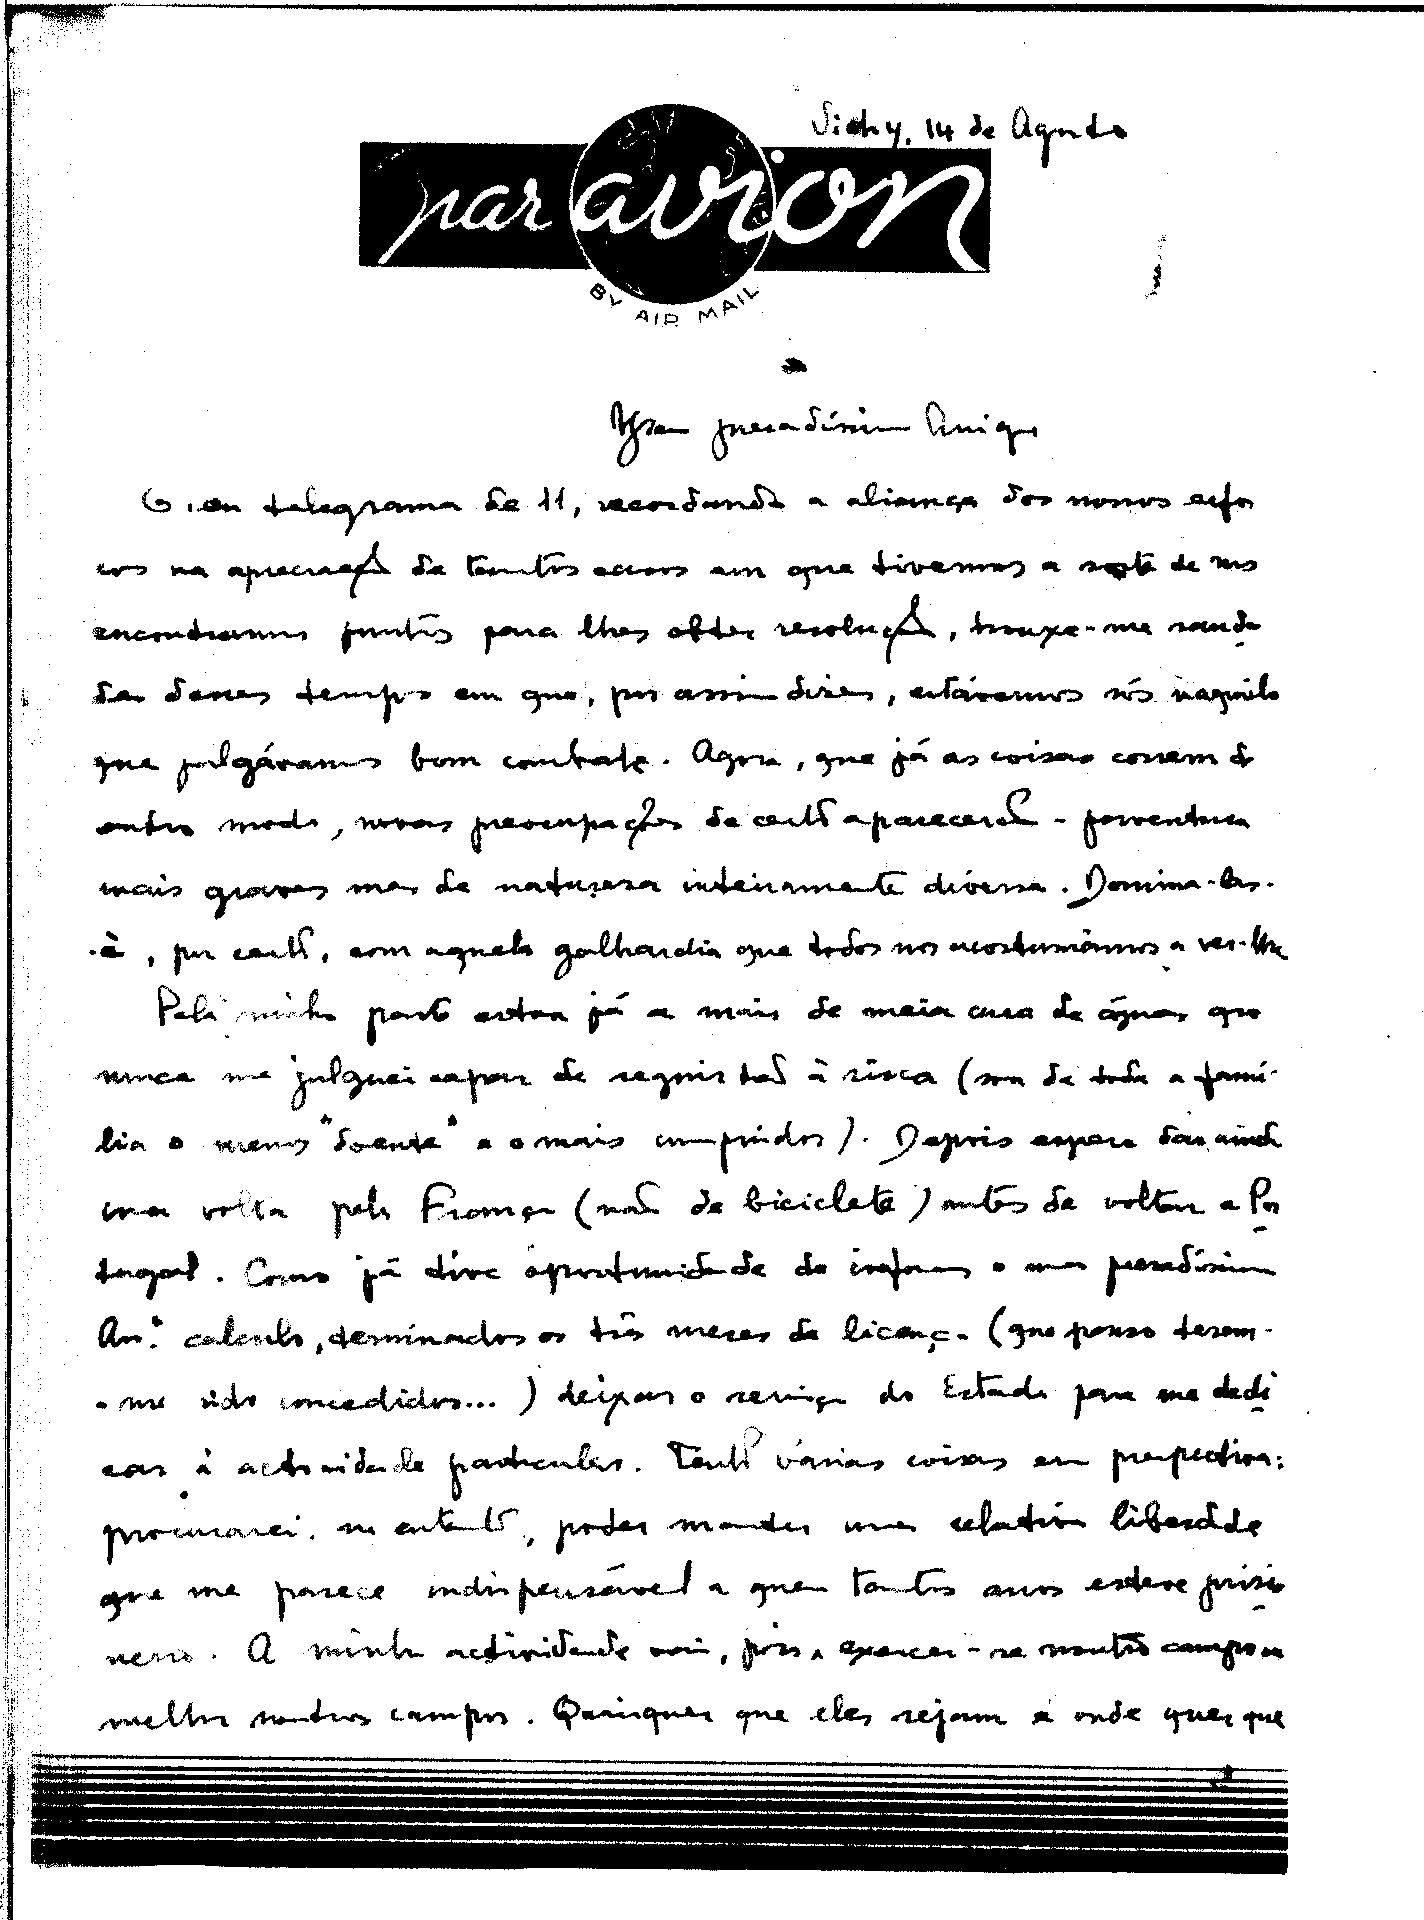 Vichy, 14 de Agosto
par avion
BY AIR MAIL
Meu presadíssimo Amigo
O seu telegrama de 11, recordando a aliança dos nossos esfor
ços na apreciação de tantos casos em que tivemos a sorte de nos
encontrarmos juntos para lhes obter resolução, trouxe-me sauda
des desses tempos em que, por assim dizer, estávamos sós naquilo
que julgávamos bom combate. Agora, que já as coisas correm de
outro modo, novas preocupações de certo aparecerão - porventura
mais graves mas de natureza inteiramente diversa. Domina-las-
-á, por certo, com aquela galhardia que todos nos acostumámos a ver-lhe.
Pela minha parte estou já a mais de meia cura de águas que
nunca me julguei capaz de seguir tão à risca (sou de toda a famí-
lia o menos "doente" e o mais cumpridor). Depois espero dar ainda
uma volta pela França (não de bicicleta) antes de voltar a Por
tugal. Como já tive oportunidade de informar o meu presadíssimo
Am.º calculo, terminados os três meses de licença (que penso terem-
-me sido concedidos...) deixar o serviço do Estado para me dedi
car à actividade particular. Tenho várias coisas em perspectiva:
procurarei, no entanto, poder manter uma relativa liberdade
que me parece indispensável a quem tantos anos esteve prisio
neiro. A minha actividade vai, pois, exercer-se noutro campo ou
melhor noutros campos. Quaisquer que eles sejam e onde quer que